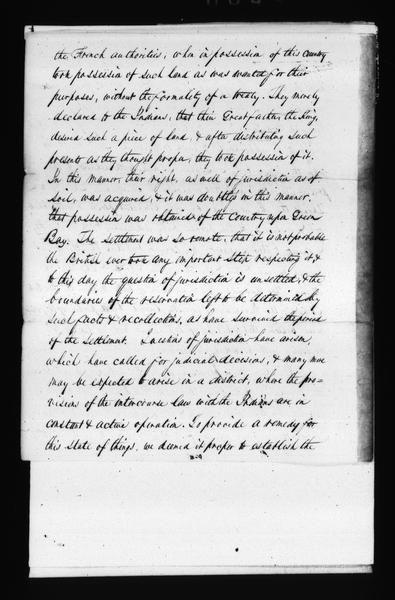 the French authorities, when in possession of this country
took possession of such land as was wanted for their
purposes, without the formality of a treaty. They merely
declared to the Indians, that their Great father, the King,
desired such a piece of land, & after distributing such
presents as they thought proper, they took possession of it.
In this manner, their right, as well of jurisdiction as of
soil, was acquired, & it was doubtless in this manner,
that possession was obtained of the Country upon Green
Bay. The settlement was so remote, that it is not probable
the British ever took any important step respecting it, &
to this day the question of jurisdiction is unsettled, & the
boundaries of the reservation left to be determined by
such facts & recollections, as have survived the period
of the settlement. Questions of jurisdiction have arisen,
which have called for judicial decisions, & many more
may be expected to arise in a district, where the pro-
visions of the intercourse law with the Indians are in
constant & active operation. To provide a remedy for
this state of things, we deemed it proper to establish the